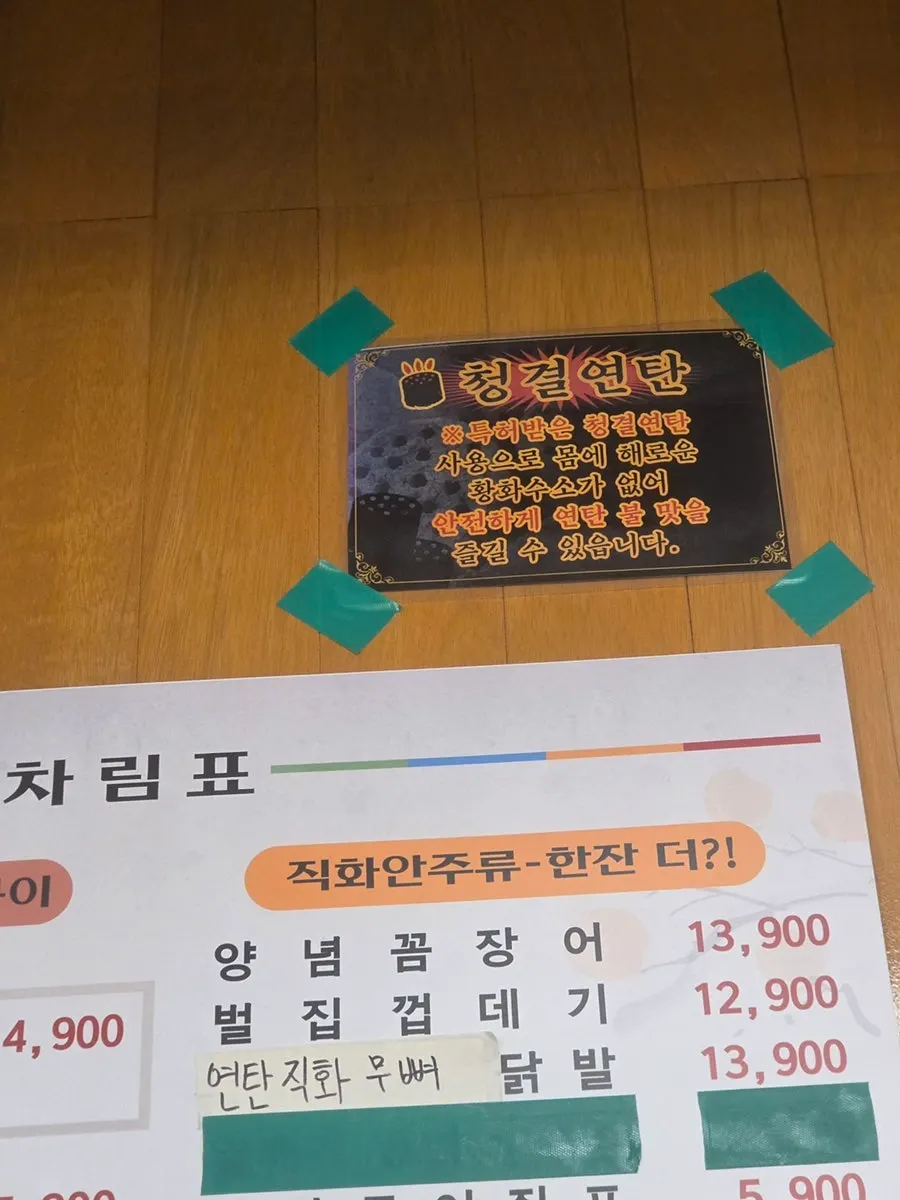 청결연탄
※특허받은 청결연탄
사용으로 몸에 해로운
황화수소가 없어
안전하게 연탄 불 맛을
즐길 수 있읍니다.
차림표
이
직화안주류-한잔 더?!
양념꼼장어 13,900
벌집껍데기 12,900
연탄직화 무뼈 닭발 13,900
4,900
5,900